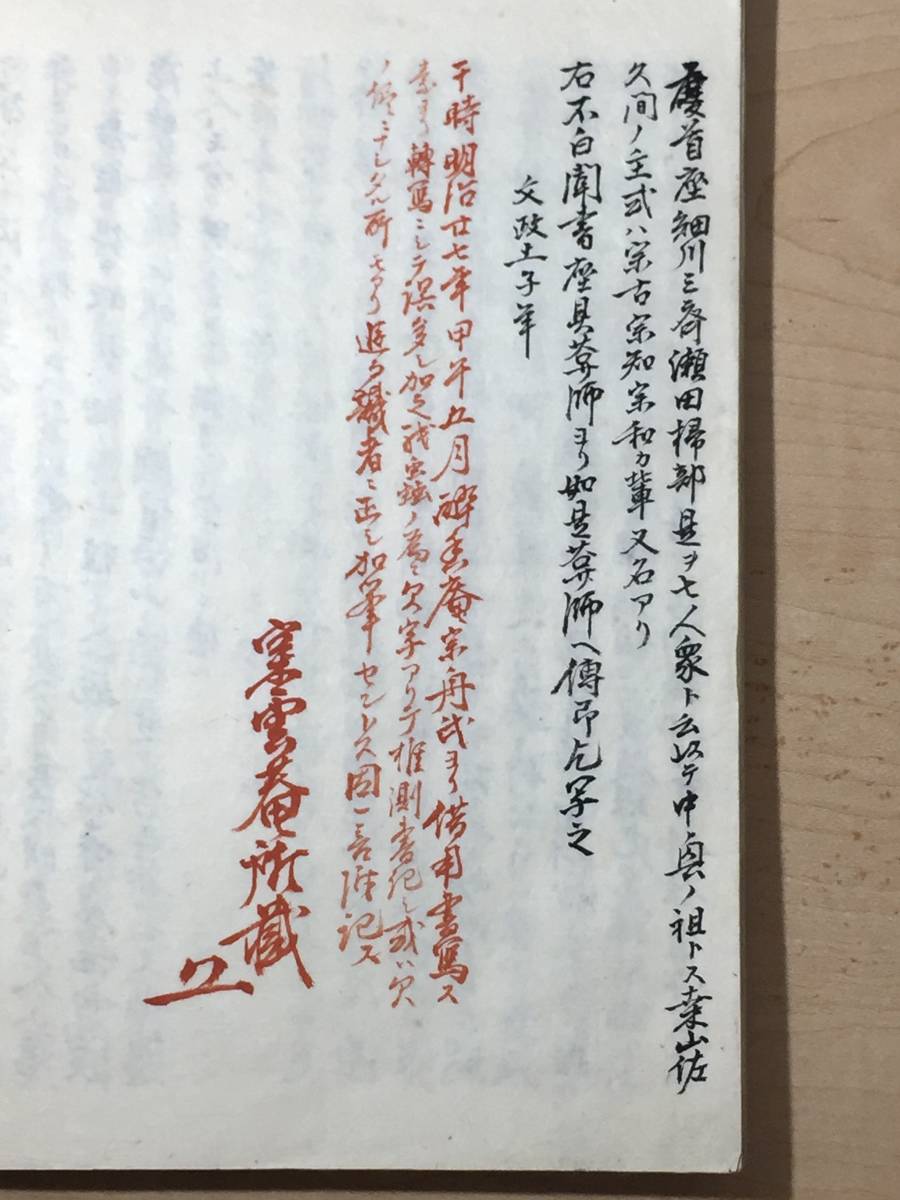 慶首座細川三斎瀬田掃部是ヲ七人衆ト云以テ中興ノ祖トス桑山佐
久間ノ主或ハ宗古宗知宗和カ輩又名アリ
右不白聞書座具菴師ヨリ如是菴師ヘ傳 乞写之
文政十一子年
于時明治廿七年甲午五月酔香庵宗舟氏ヨリ借用書写ス
素ヨリ轉写ニシテ誤多シ加之 虫ノ為ニ欠字アリテ推測書記シ或ハ欠
ノ侭ニナシタル所モアリ 識者ニ正シ加筆セントス因一言 記ス
寒雲菴所蔵